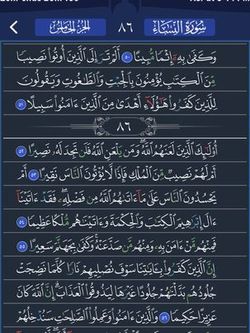 سُورَةُ النِّسَاءِ ٨٦ الجُزْءُ الخَامِسُ
وَكَفَىٰ بِهِۦٓ إِثْمًا مُّبِينًا ٥٠ أَلَمْ تَرَ إِلَى ٱلَّذِينَ أُوتُوا۟ نَصِيبًا
مِّنَ ٱلْكِتَٰبِ يُؤْمِنُونَ بِٱلْجِبْتِ وَٱلطَّٰغُوتِ وَيَقُولُونَ
لِلَّذِينَ كَفَرُوا۟ هَٰٓؤُلَآءِ أَهْدَىٰ مِنَ ٱلَّذِينَ ءَامَنُوا۟ سَبِيلًا ٥١
٨٦
أُو۟لَٰٓئِكَ ٱلَّذِينَ لَعَنَهُمُ ٱللَّهُ وَمَن يَلْعَنِ ٱللَّهُ فَلَن تَجِدَ لَهُۥ نَصِيرًا ٥٢
أَمْ لَهُمْ نَصِيبٌ مِّنَ ٱلْمُلْكِ فَإِذًا لَّا يُؤْتُونَ ٱلنَّاسَ نَقِيرًا ٥٣ أَمْ
يَحْسُدُونَ ٱلنَّاسَ عَلَىٰ مَآ ءَاتَىٰهُمُ ٱللَّهُ مِن فَضْلِهِۦ فَقَدْ ءَاتَيْنَآ
ءَالَ إِبْرَٰهِيمَ ٱلْكِتَٰبَ وَٱلْحِكْمَةَ وَءَاتَيْنَٰهُم مُّلْكًا عَظِيمًا ٥٤
فَمِنْهُم مَّنْ ءَامَنَ بِهِۦ وَمِنْهُم مَّن صَدَّ عَنْهُ وَكَفَىٰ بِجَهَنَّمَ سَعِيرًا ٥٥
إِنَّ ٱلَّذِينَ كَفَرُوا۟ بِـَٔايَٰتِنَا سَوْفَ نُصْلِيهِمْ نَارًا كُلَّمَا نَضِجَتْ
جُلُودُهُم بَدَّلْنَٰهُمْ جُلُودًا غَيْرَهَا لِيَذُوقُوا۟ ٱلْعَذَابَ إِنَّ ٱللَّهَ كَانَ
عَزِيزًا حَكِيمًا ٥٦ وَٱلَّذِينَ ءَامَنُوا۟ وَعَمِلُوا۟ ٱلصَّٰلِحَٰتِ سَنُدْخِلُهُمْ